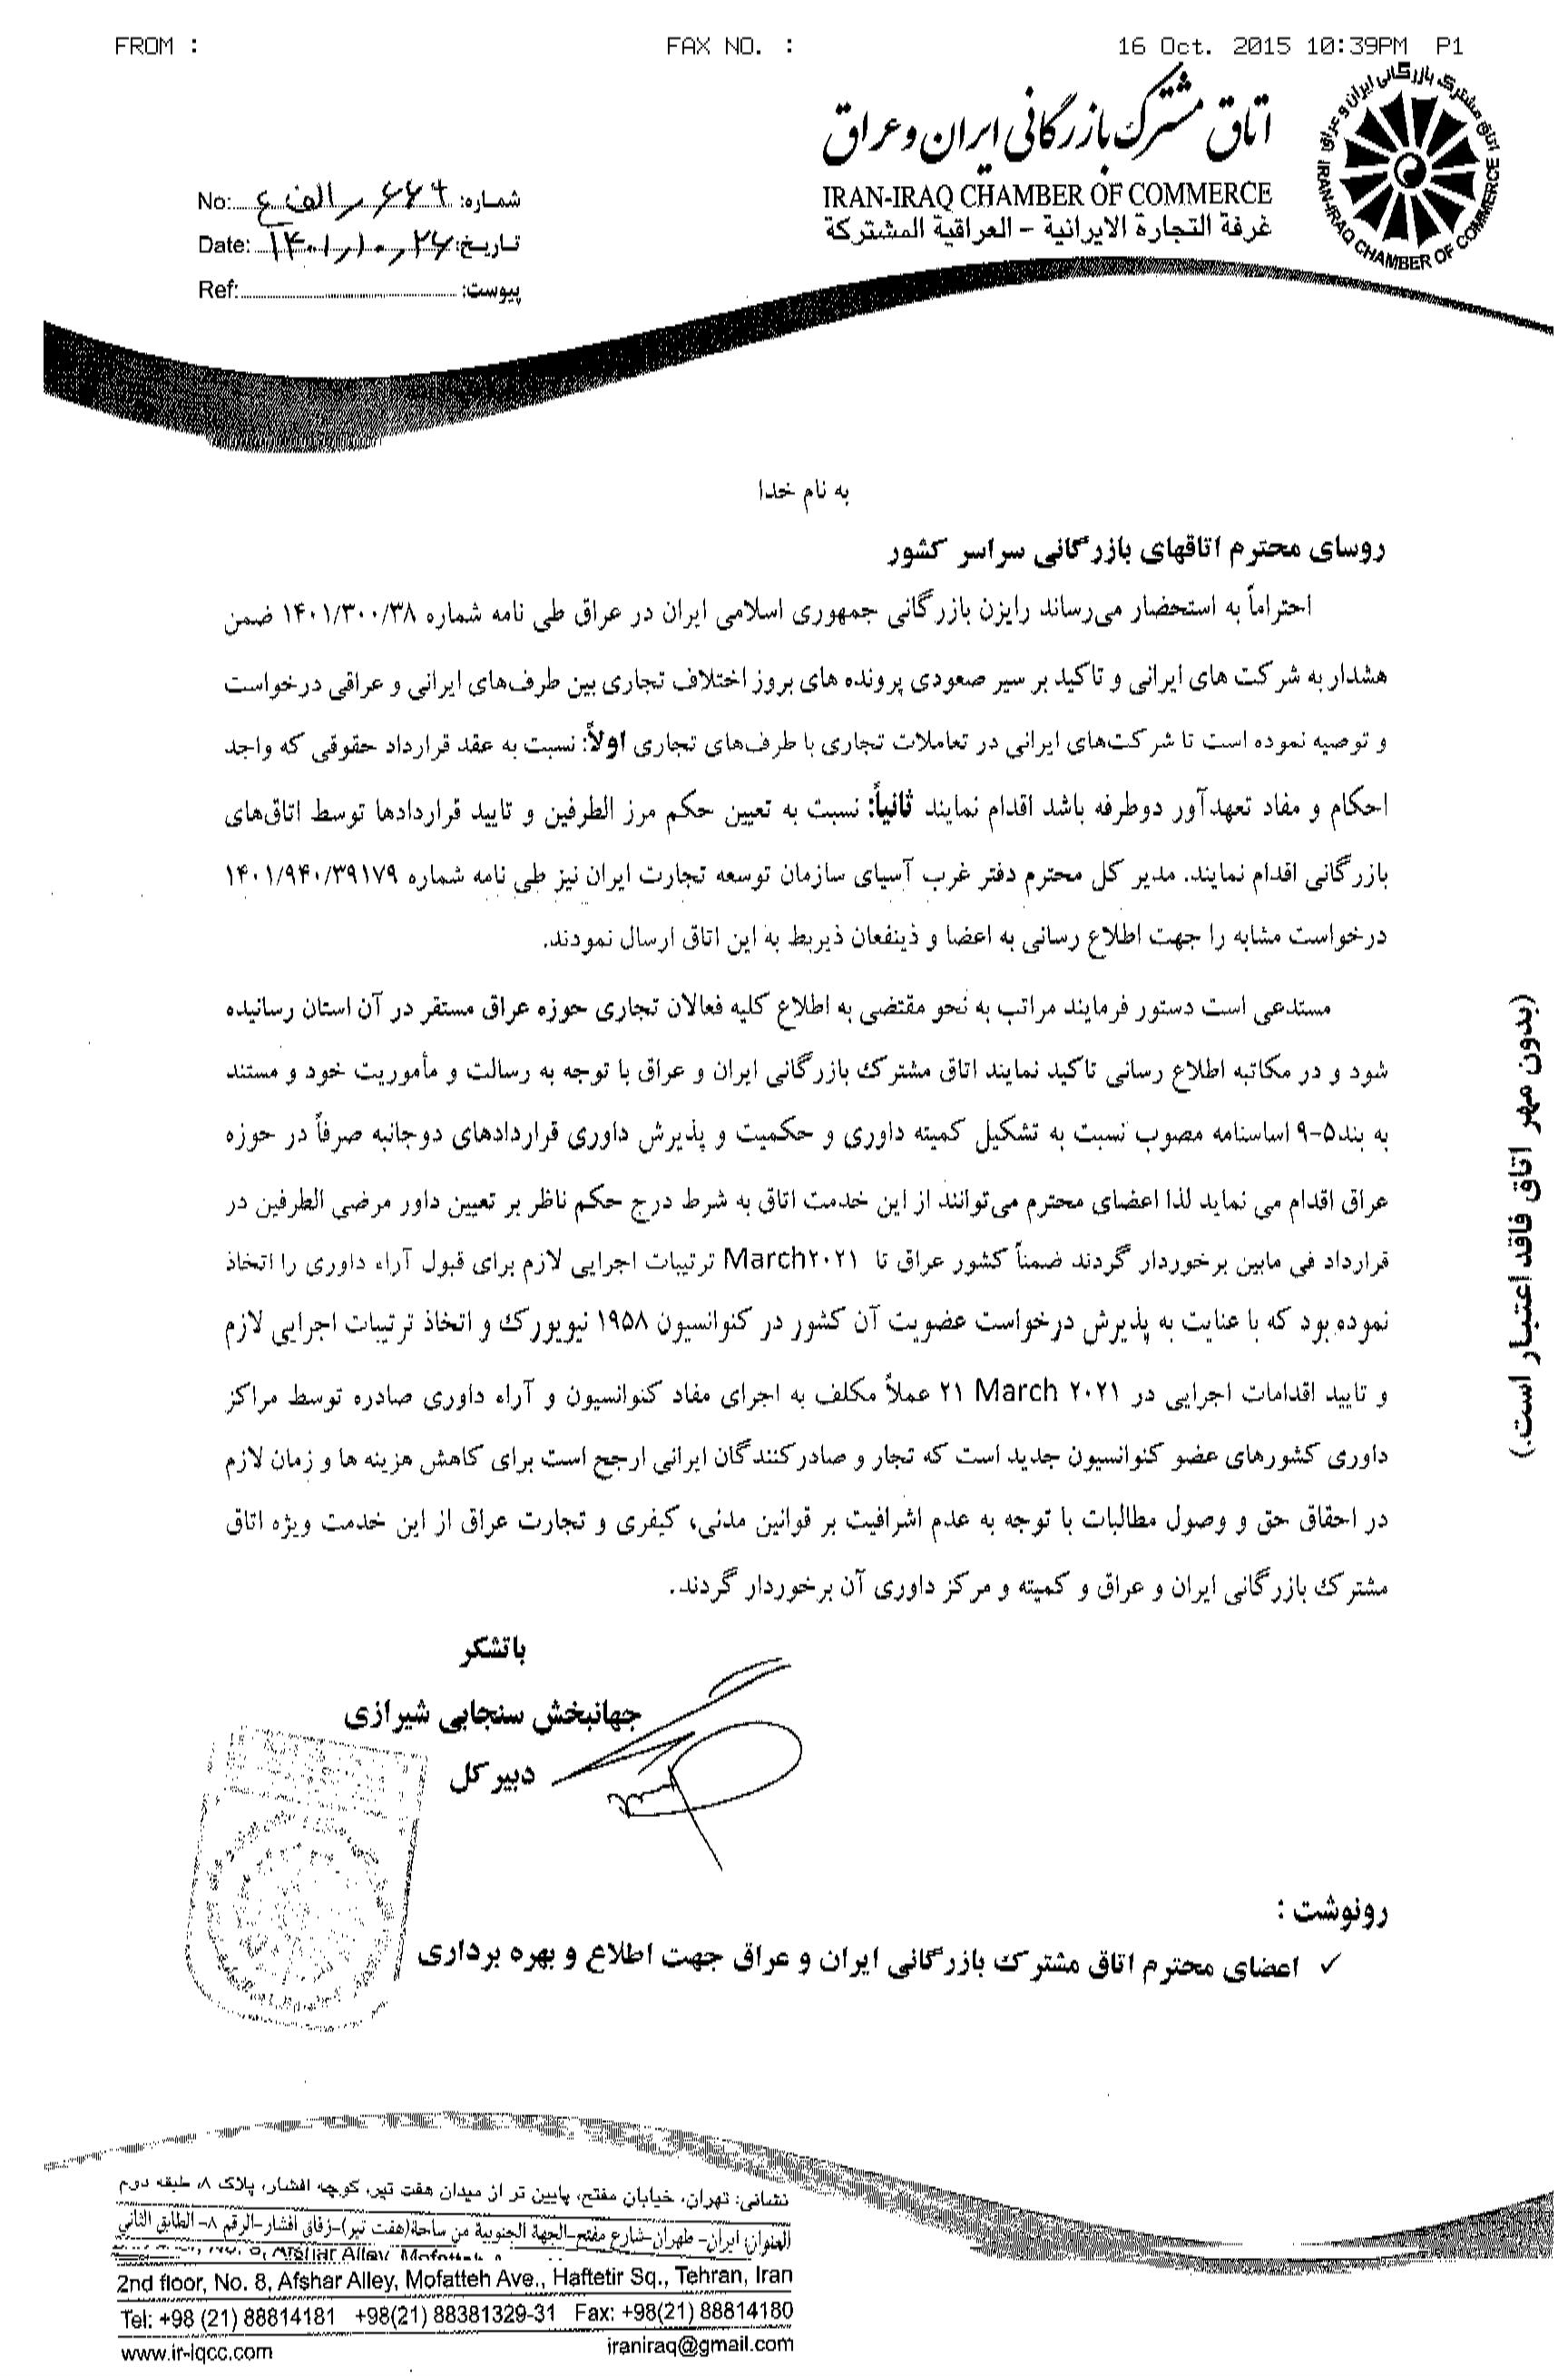 FROM : FAX NO. : 16 Oct. 2015 10:39PM P1
اتاق مشترک بازرگانی ایران و عراق
IRAN-IRAQ CHAMBER OF COMMERCE
غرفة التجارة الايرانية - العراقية المشتركة
اتاق مشترک بازرگانی ایران و عراق
IRAN-IRAQ CHAMBER OF COMMERCE
شماره: ۶۶۹ ر الف ع No:
تاریخ: ۱۴۰۱٫۱۰٫۲۶ Date:
پیوست: Ref:
به نام خدا
روسای محترم اتاقهای بازرگانی سراسر کشور
احتراماً به استحضار می‌رساند رایزن بازرگانی جمهوری اسلامی ایران در عراق طی نامه شماره ۱۴۰۱/۳۰۰/۳۸ ضمن
هشدار به شرکت های ایرانی و تاکید بر سیر صعودی پرونده های بروز اختلاف تجاری بین طرف‌های ایرانی و عراقی درخواست
و توصیه نموده است تا شرکت‌های ایرانی در تعاملات تجاری با طرف‌های تجاری اولاً: نسبت به عقد قرارداد حقوقی که واجد
احکام و مفاد تعهدآور دوطرفه باشد اقدام نمایند ثانیاً: نسبت به تعیین حکم مرز الطرفین و تایید قراردادها توسط اتاق‌های
بازرگانی اقدام نمایند. مدیر کل محترم دفتر غرب آسیای سازمان توسعه تجارت ایران نیز طی نامه شماره ۱۴۰۱/۹۴۰/۳۹۱۷۹
درخواست مشابه را جهت اطلاع رسانی به اعضا و ذینفعان ذیربط به این اتاق ارسال نمودند.
مستدعی است دستور فرمایند مراتب به نحو مقتضی به اطلاع کلیه فعالان تجاری حوزه عراق مستقر در آن استان رسانیده
شود و در مکاتبه اطلاع رسانی تاکید نمایند اتاق مشترک بازرگانی ایران و عراق با توجه به رسالت و مأموریت خود و مستند
به بند۵-۹ اساسنامه مصوب نسبت به تشکیل کمیته داوری و حکمیت و پذیرش داوری قراردادهای دوجانبه صرفاً در حوزه
عراق اقدام می نماید لذا اعضای محترم می‌توانند از این خدمت اتاق به شرط درج حکم ناظر بر تعیین داور مرضی الطرفین در
قرارداد فی مابین برخوردار گردند ضمناً کشور عراق تا March۲۰۲۱ ترتیبات اجرایی لازم برای قبول آراء داوری را اتخاذ
نموده بود که با عنایت به پذیرش درخواست عضویت آن کشور در کنوانسیون ۱۹۵۸ نیویورک و اتخاذ ترتیبات اجرایی لازم
و تایید اقدامات اجرایی در ۲۰۲۱ March ۲۱ عملاً مکلف به اجرای مفاد کنوانسیون و آراء داوری صادره توسط مراکز
داوری کشورهای عضو کنوانسیون جدید است که تجار و صادرکنندگان ایرانی ارجح است برای کاهش هزینه ها و زمان لازم
در احقاق حق و وصول مطالبات با توجه به عدم اشرافیت بر قوانین مدنی، کیفری و تجارت عراق از این خدمت ویژه اتاق
مشترک بازرگانی ایران و عراق و کمیته و مرکز داوری آن برخوردار گردند.
(بدون مهر اتاق فاقد اعتبار است.)
باتشکر
جهانبخش سنجابی شیرازی
دبیر کل
رونوشت :
✓ اعضای محترم اتاق مشترک بازرگانی ایران و عراق جهت اطلاع و بهره برداری
نشانی: تهران، خیابان مفتح، پایین تر از میدان هفت تیر، کوچه افشار، پلاک ۸، طبقه دوم
العنوان ايران- طهران-شارع مفتح-الجهة الجنوبية من ساحة(هفت تير)-زقاق افشار-الرقم ۸- الطابق الثاني
2nd floor, No. 8, Afshar Alley, Mofatteh Ave., Haftetir Sq., Tehran, Iran
Tel: +98 (21) 88814181 +98(21) 88381329-31 Fax: +98(21) 88814180
www.ir-iqcc.com iraniraq@gmail.com